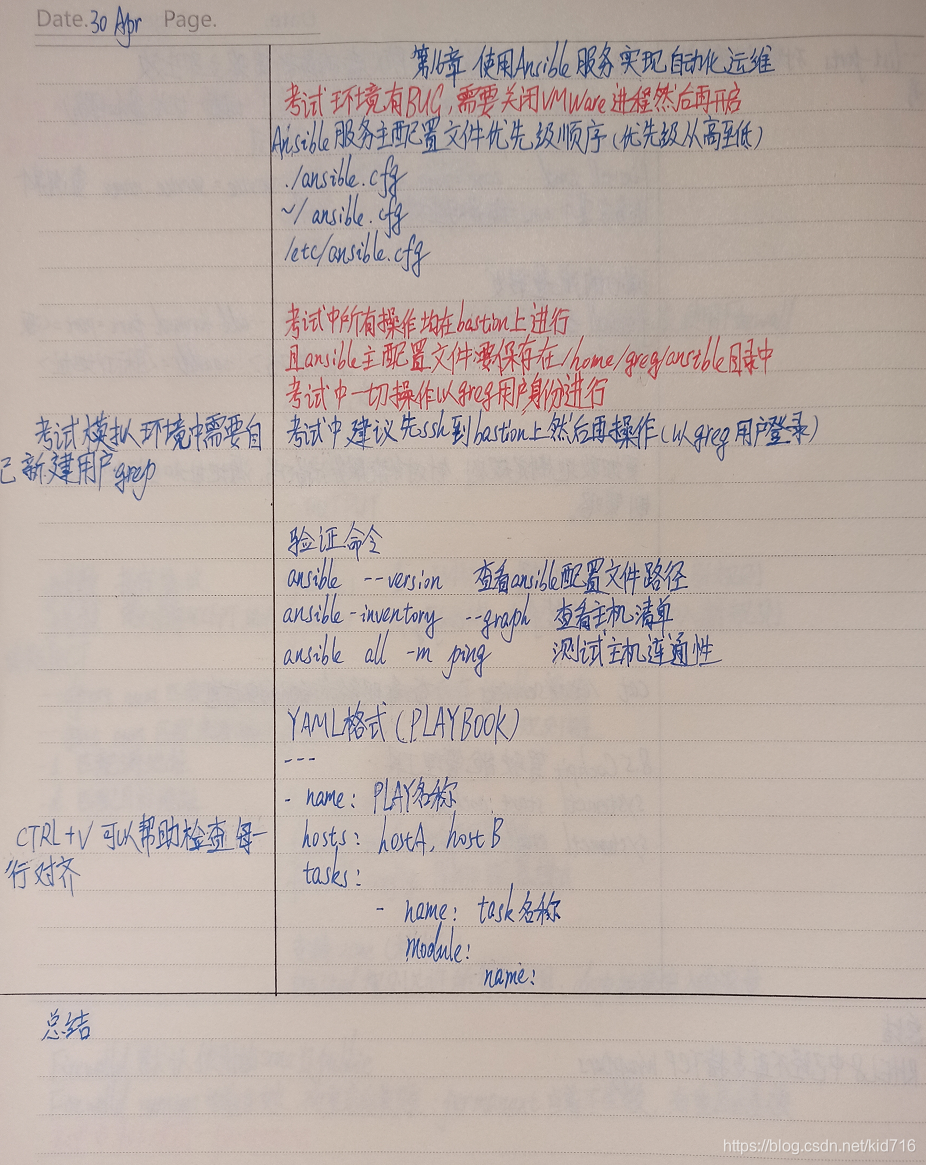 Date. 30 Apr Page.
第16章 使用Ansible服务实现自动化运维
考试环境有BUG,需要关闭VMWare进程然后再开启
Ansible服务主配置文件优先级顺序(优先级从高至低)
./ansible.cfg
~/ansible.cfg
/etc/ansible.cfg
考试中所有操作均在bastion上进行
且ansible主配置文件要保存在/home/greg/ansible目录中
考试中一切操作以greg用户身份进行
考试模拟环境中需要自
己新建用户grep
考试中建议先ssh到bastion上然后再操作(以greg用户登录)
验证命令
ansible --version 查看ansible配置文件路径
ansible-inventory --graph 查看主机清单
ansible all -m ping 测试主机连通性
YAML格式(PLAYBOOK)
---
- name: PLAY名称
CTRL+V 可以帮助检查每一
行对齐
hosts: hostA, hostB
tasks:
- name: task名称
module:
name:
总结
https://blog.csdn.net/kid716